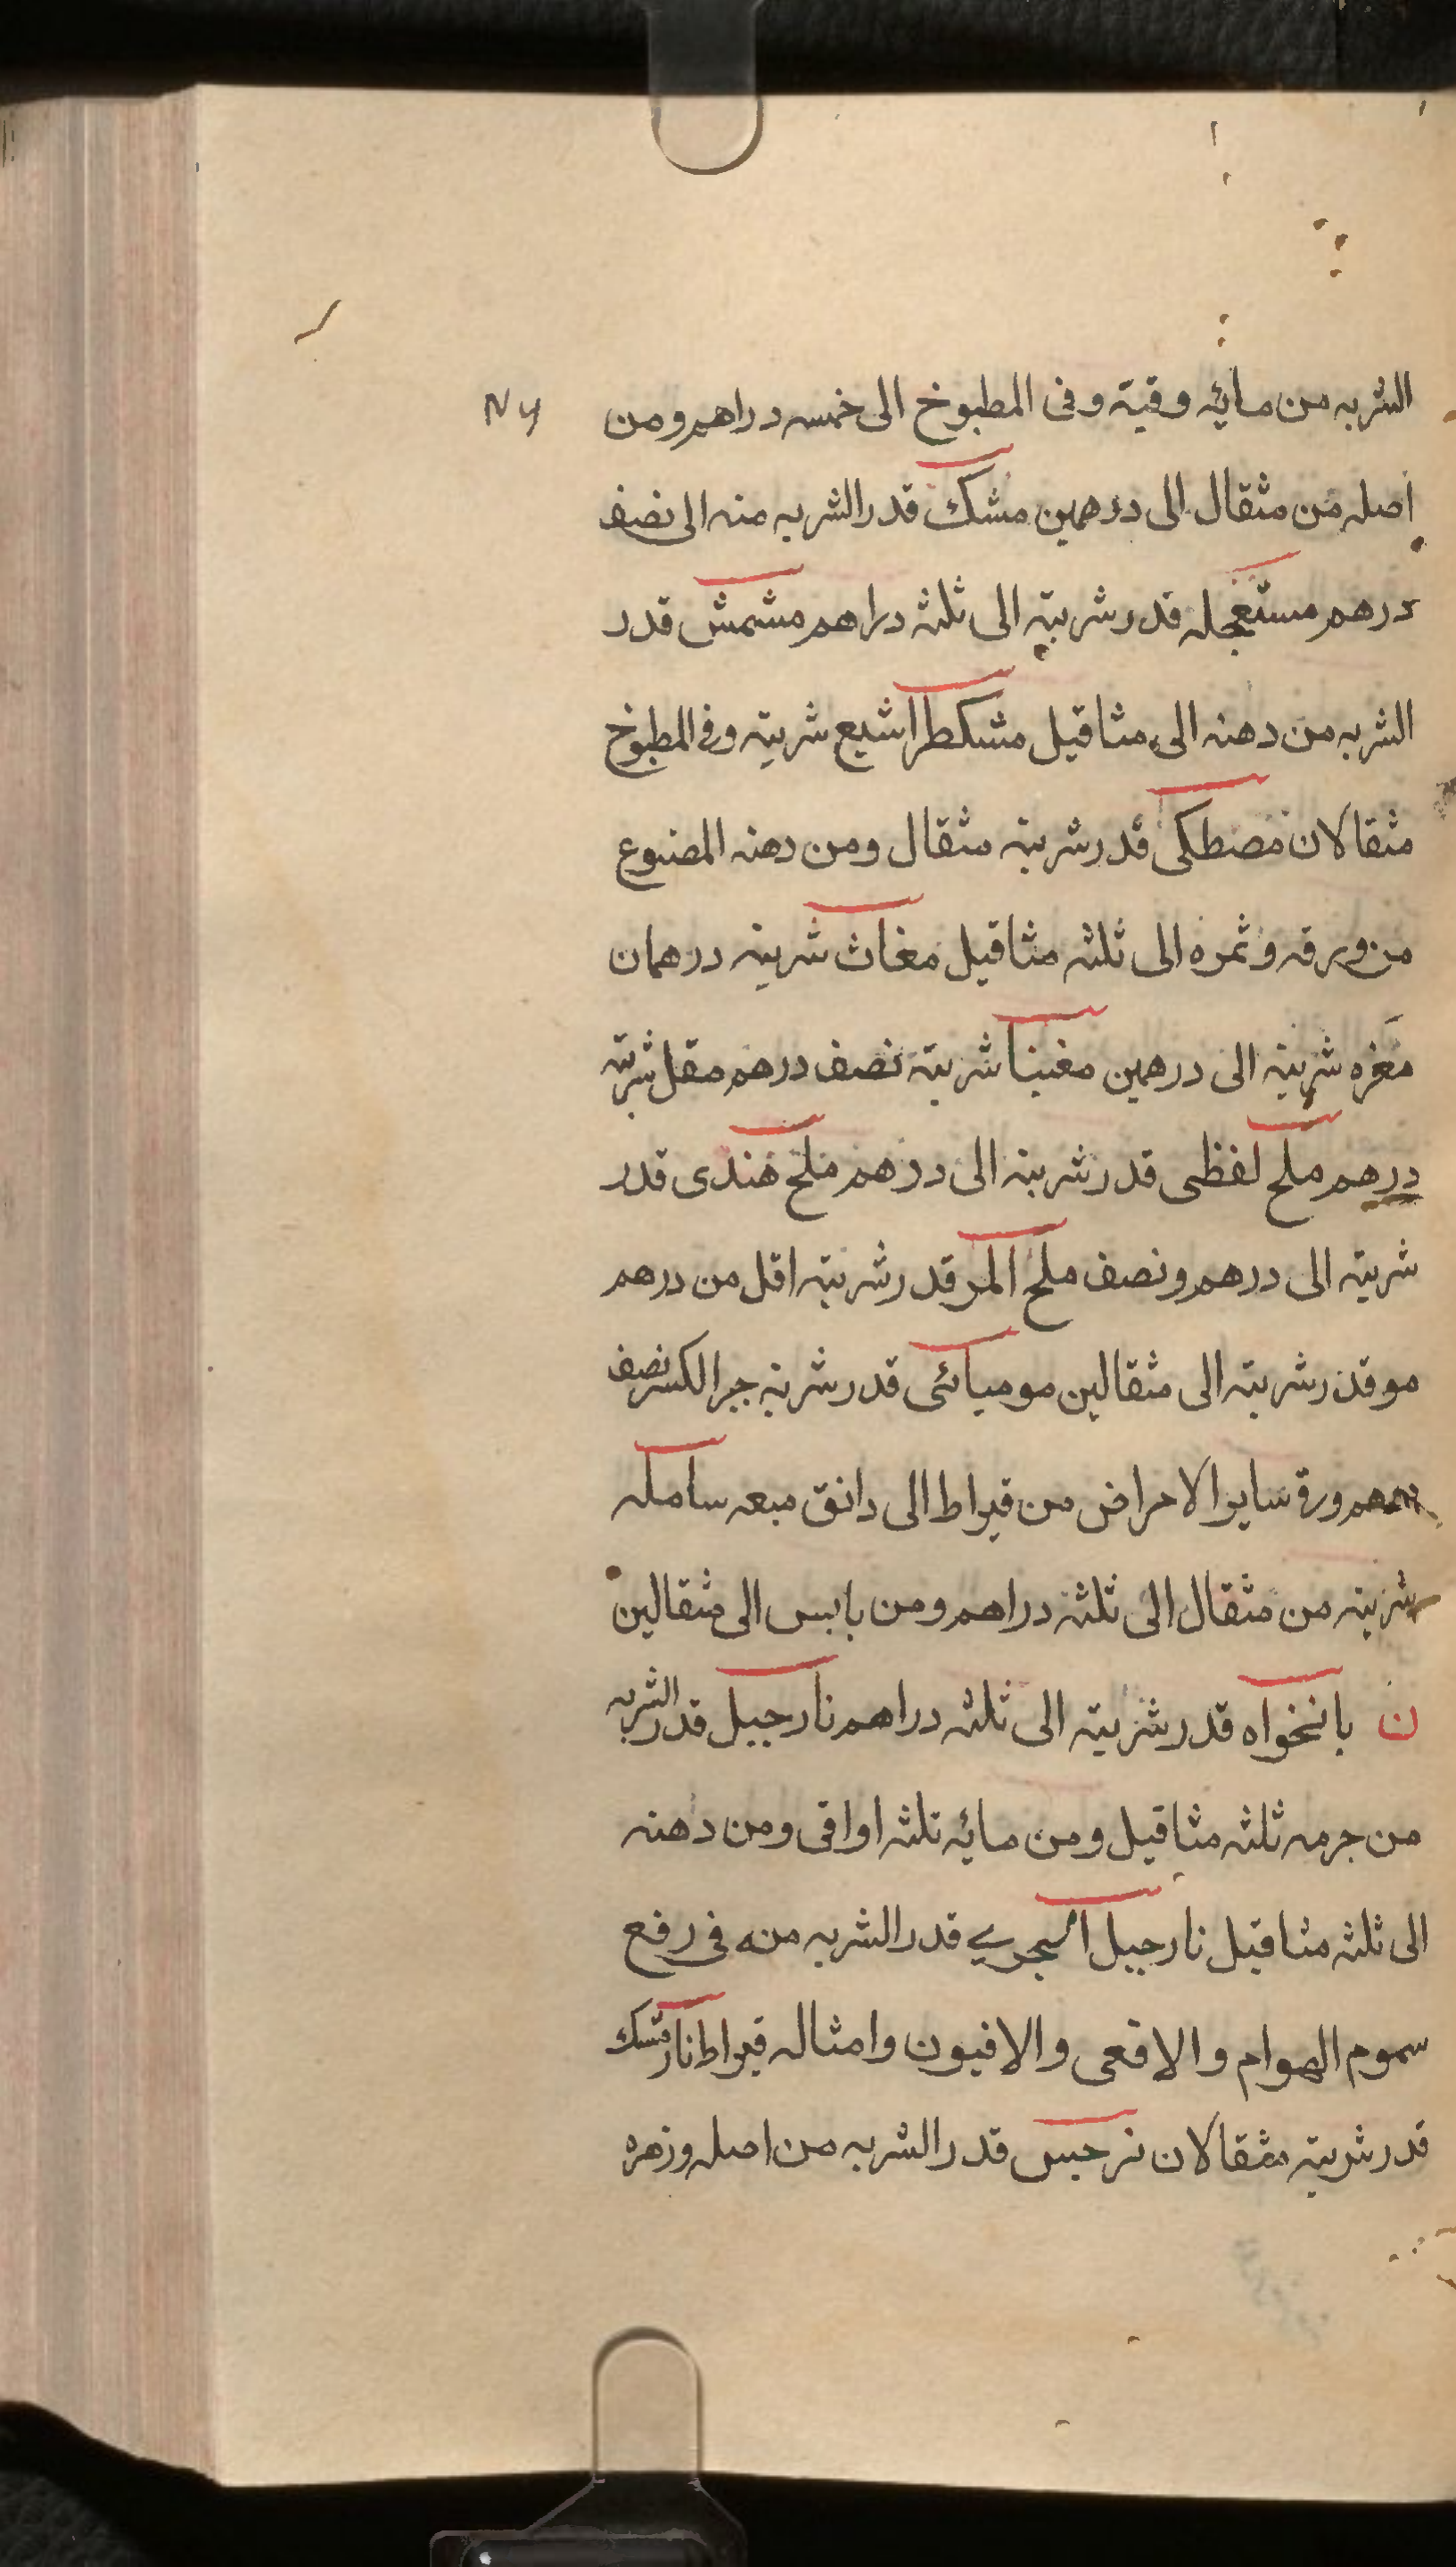 الشربه من مائه وقية وفى المطبوخ الى خمسه دراهم ومن
اصله من مثقال الى درهمين مشك قدر الشربه منه الى نصف
درهم مستعجله قدر شربته الى ثلثه دراهم مشمش قدر
الشربه من دهنه الى مثاقيل مشكطراشيع شربته وفى المطبوخ
مثقالان مصطكى قدر شربته مثقال ومن دهنه المصنوع
من ورقه وثمره الى ثلثه مثاقيل مغاث شربته درهمان
مغره شربته الى درهمين مغنيا شربته نصف درهم مقل شربته
درهم ملح لفظى قدر شربته الى درهم ملح هندى قدر
شربته الى درهم ونصف ملح المر قدر شربته اقل من درهم
مو قدر شربته الى مثقالين موميائى قدر شربته جبر الكسر نصف
درهم وفى ساير الامراض من قيراط الى دانق ميعه سامله
شربته من مثقال الى ثلثه دراهم ومن يابس الى مثقالين
ن نانخواه قدر شربته الى ثلثه دراهم نارجيل قدر الشربه
من جرمه ثلثه مثاقيل ومن مائه ثلثه اواقى ومن دهنه
الى ثلثه مثاقيل نارجيل البحري قدر الشربه منه فى رفع
سموم الهوام والافعى والافيون وامثاله قيراط نارمشك
قدر شربته مثقالان نرجس قدر الشربه من اصله وزهره